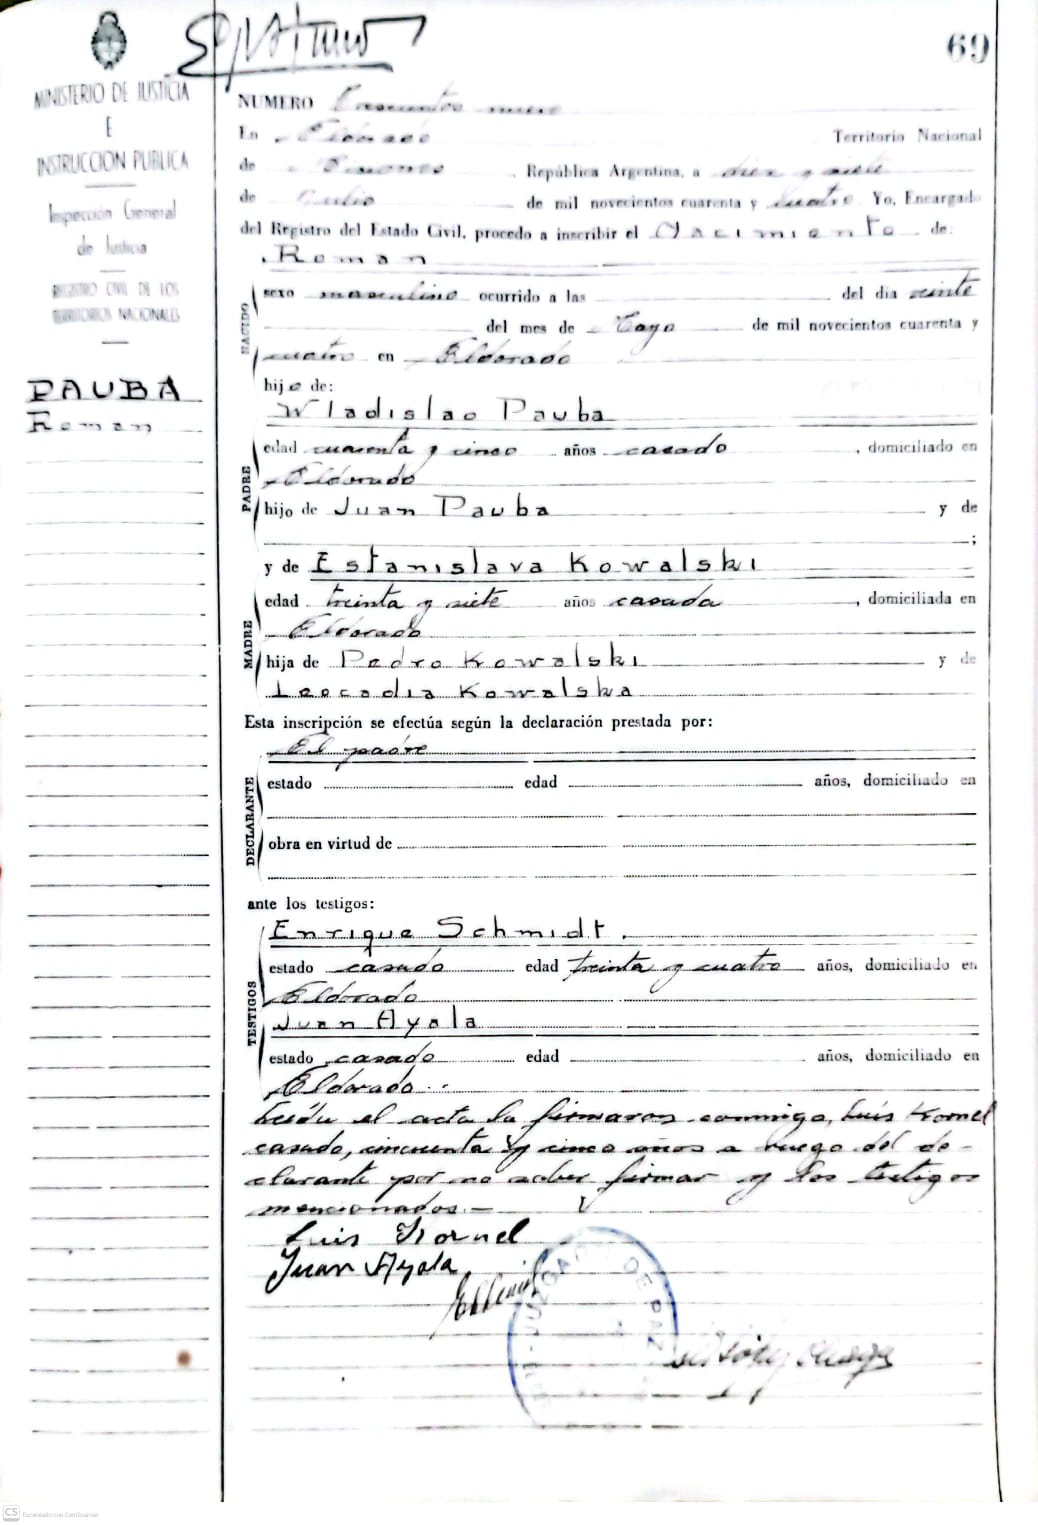 69
MINISTERIO DE JUSTICIA
E
INSTRUCCION PUBLICA
Inspección General
de Justicia
REGISTRO CIVIL DE LOS
TERRITORIOS NACIONALES
PAUBA
Roman
NUMERO
En Eldorado Territorio Nacional
de Misiones, República Argentina, a diez y siete
de Julio de mil novecientos cuarenta y cuatro Yo, Encargado
del Registro del Estado Civil, procedo a inscribir el Nacimiento de:
Roman
NACIDO
sexo masculino ocurrido a las del dia veinte
del mes de Mayo de mil novecientos cuarenta y
cuatro en Eldorado
hijo de:
Wladislao Pauba
PADRE
edad cuarenta y cinco años casado, domiciliado en
Eldorado
hijo de Juan Pauba y de
;
y de Estanislava Kowalski
MADRE
edad treinta y siete años casada, domiciliada en
Eldorado
hija de Pedro Kowalski y de
Leocadia Kowalska
Esta inscripción se efectúa según la declaración prestada por:
El padre
DECLARANTE
estado edad años, domiciliado en
obra en virtud de
ante los testigos:
TESTIGOS
Enrique Schmidt.
estado casado edad treinta y cuatro años, domiciliado en
Eldorado
Juan Ayala
estado casado edad años, domiciliado en
Eldorado
Leída el acta la firmaron conmigo, Luis Kornel
casado, cincuenta y cinco años a ruego del de-
clarante por no saber firmar y los testigos
mencionados.—
Luis Kornel
Juan Ayala
JUZGADO DE PAZ
CS Escaneado con CamScanner